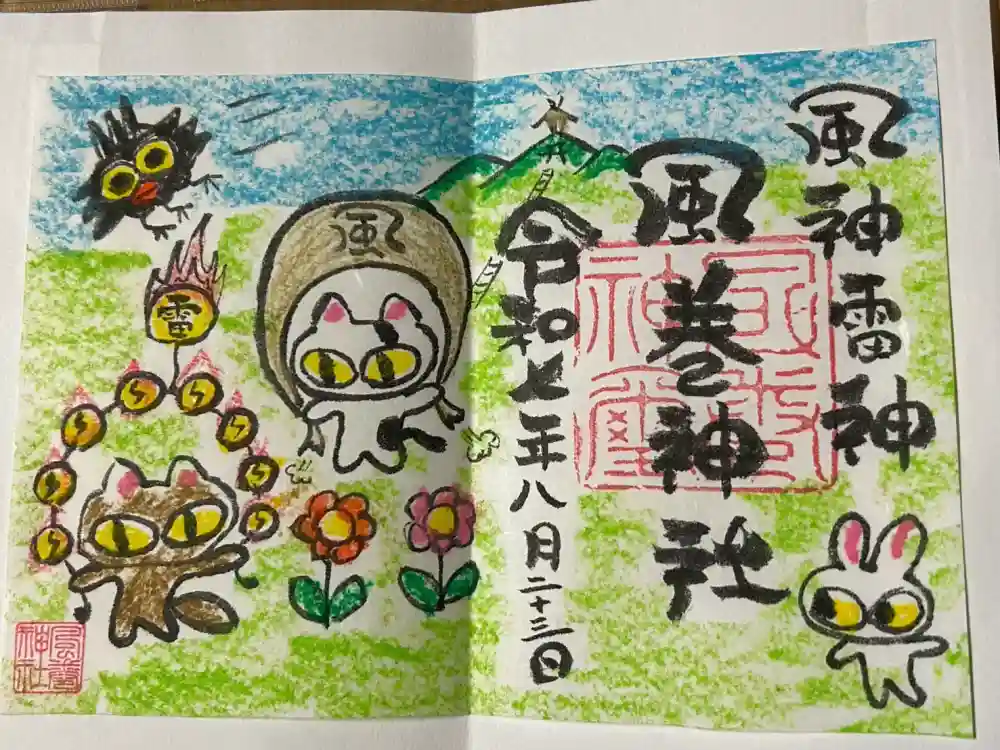 風神雷神
風巻神社
令和七年八月二十三日
風
雷
風巻神社